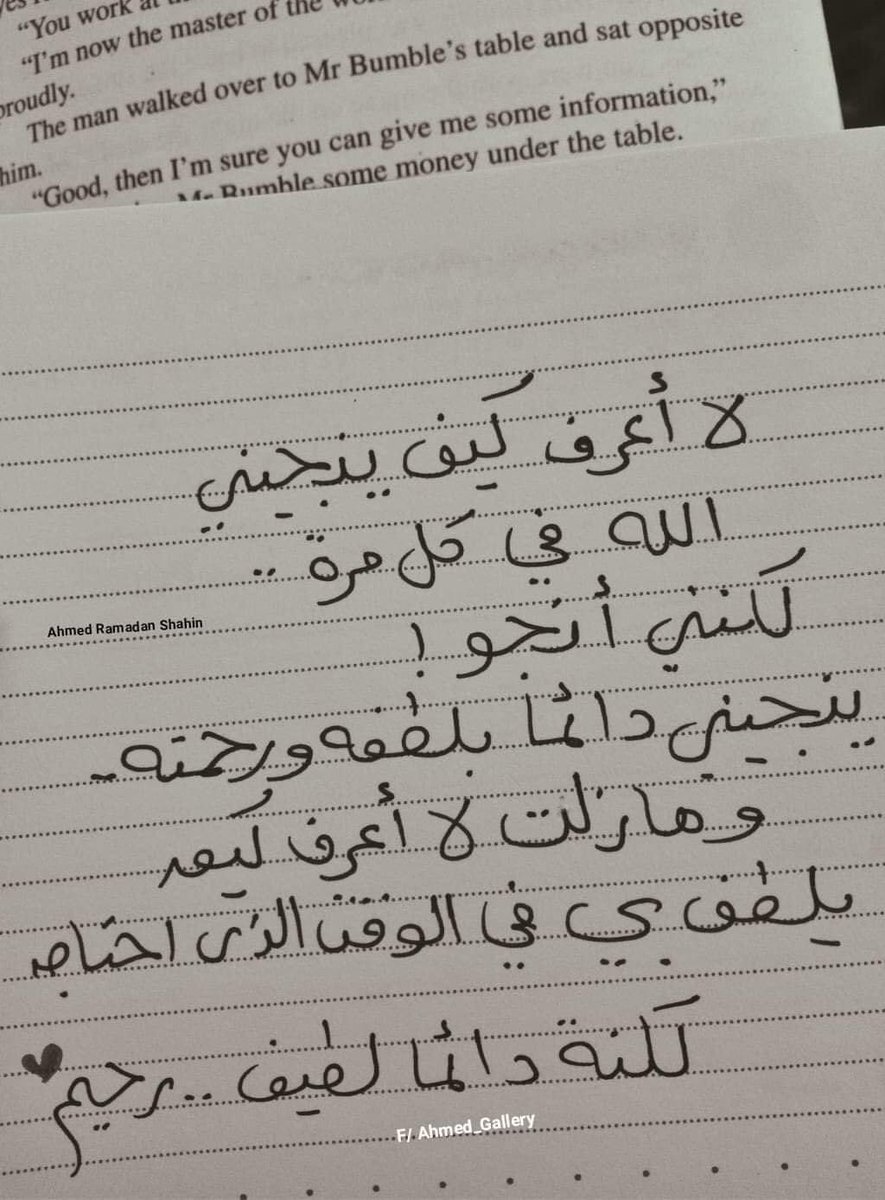 "You work at
"I'm now the master of the
proudly.
The man walked over to Mr Bumble's table and sat opposite
him.
"Good, then I'm sure you can give me some information,"
Mr Bumble some money under the table.
لا أعرف كيف ينجيني
الله في كل مرة ..
لكنني أنجو !
ينجيني دائما بلطفه ورحمته
Ahmed Ramadan Shahin
ومازلت لا أعرف كيف
يلطف بي في الوقت الذي احتاج
لكنة دائما لطيف .. رحيم ♥
F/ Ahmed_Gallery